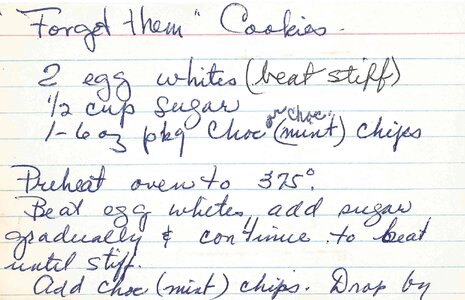 "Forget them" Cookies.
2 egg whites (beat stiff)
1/2 cup sugar
or choc
1-6 oz pkg Choc (mint) chips
Preheat oven to 375°.
Beat egg whites, add sugar
gradually & continue to beat
until stiff.
Add choc (mint) chips. Drop by